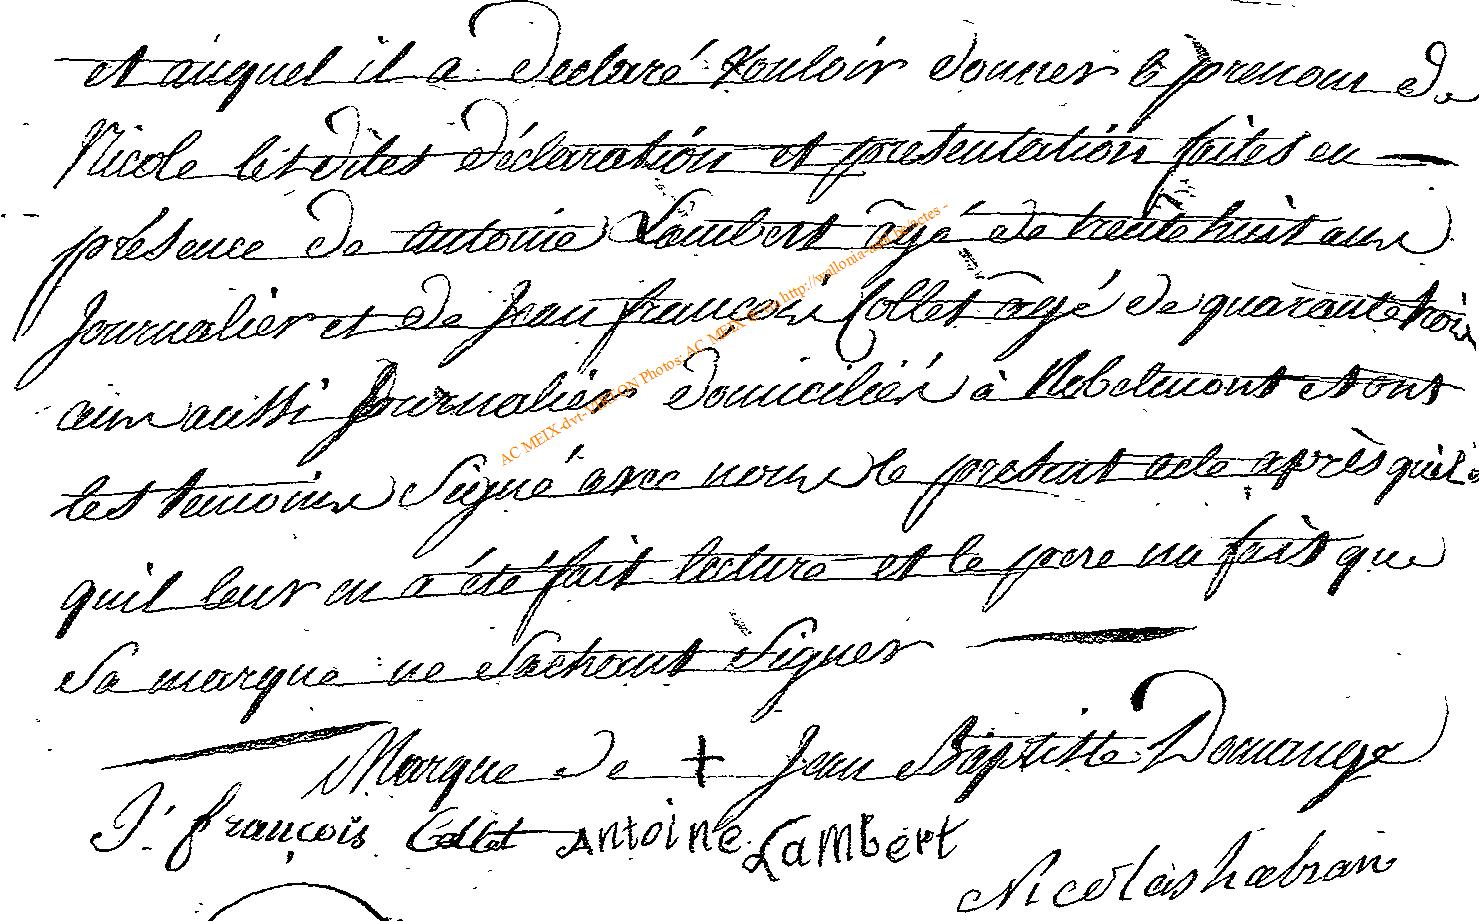 et auquel il a declaré vouloir donner le prenom de
Nicole lesdites déclaration et presentation faites en
présence de antoine Lambert âgé de trente huit ans
Journalier et de Jean françois Collet âgé de quarante trois
ans aussi Journalier domiciliés à Robelmont et ont
les temoins Signé avec nous le present acte après quil
quil leur en a été fait lecture et le pere na fait que
Sa marque ne Sachant Signer
Marque de + Jean Baptiste Domange
J. françois Collet Antoine Lambert
Nicolas habran
AC MEIX-dvt-VIRTON Photos: AC MEIX http://wallonia-